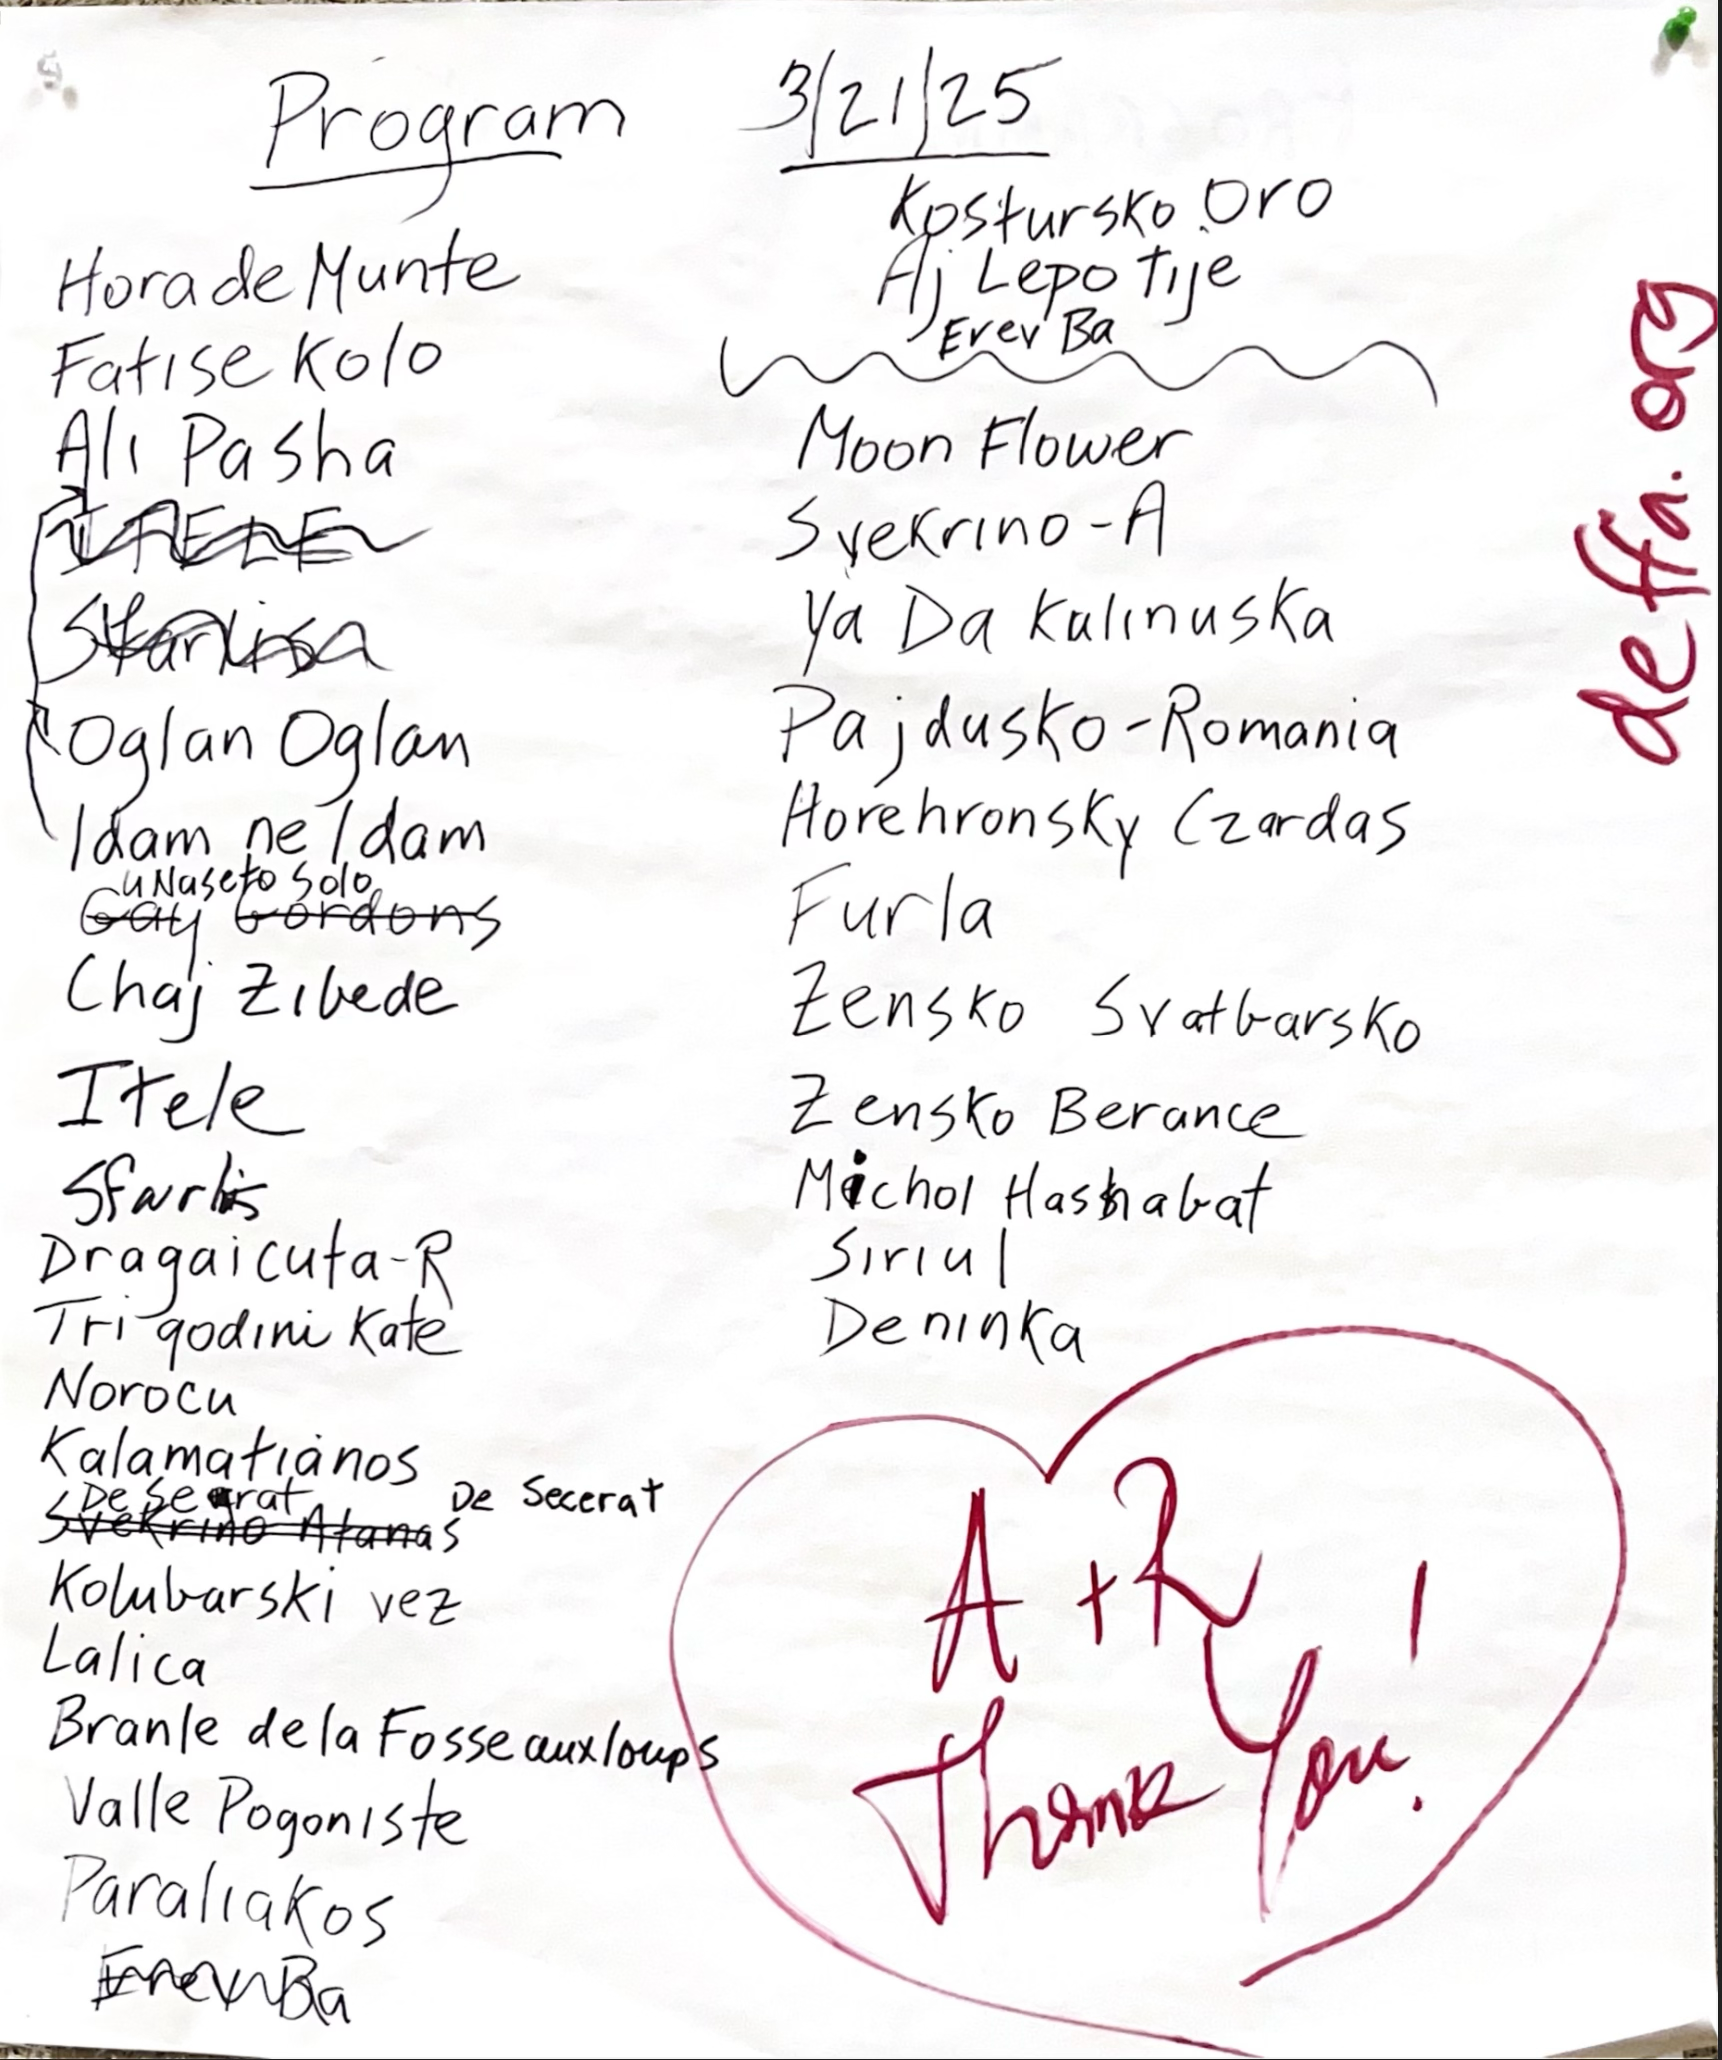 Program 3/21/25
Hora de Munte
Fatise Kolo
Ali Pasha
ITELE
Sfarlisa
Oglan Oglan
Idam ne Idam
u Naseto Solo
Gay Gordons
Chaj Zibede
Itele
Sfarlis
Dragaicuta-R
Tri godini Kate
Norocu
Kalamatianos
De Secerat
De Secerat
Svekrino Atanas
Kolubarski vez
Lalica
Branle de la Fosse aux loups
Valle Pogoniste
Paraliakos
Erev Ba
Kostursko Oro
Aj Lepo Tije
Erev Ba
Moon Flower
Svekrino-A
Ya Da Kalinuska
Pajdusko-Romania
Horehronsky Czardas
Furla
Zensko Svatbarsko
Zensko Berance
Michol Hashabat
Siriul
Deninka
A + R
Thank You!
deffa.org